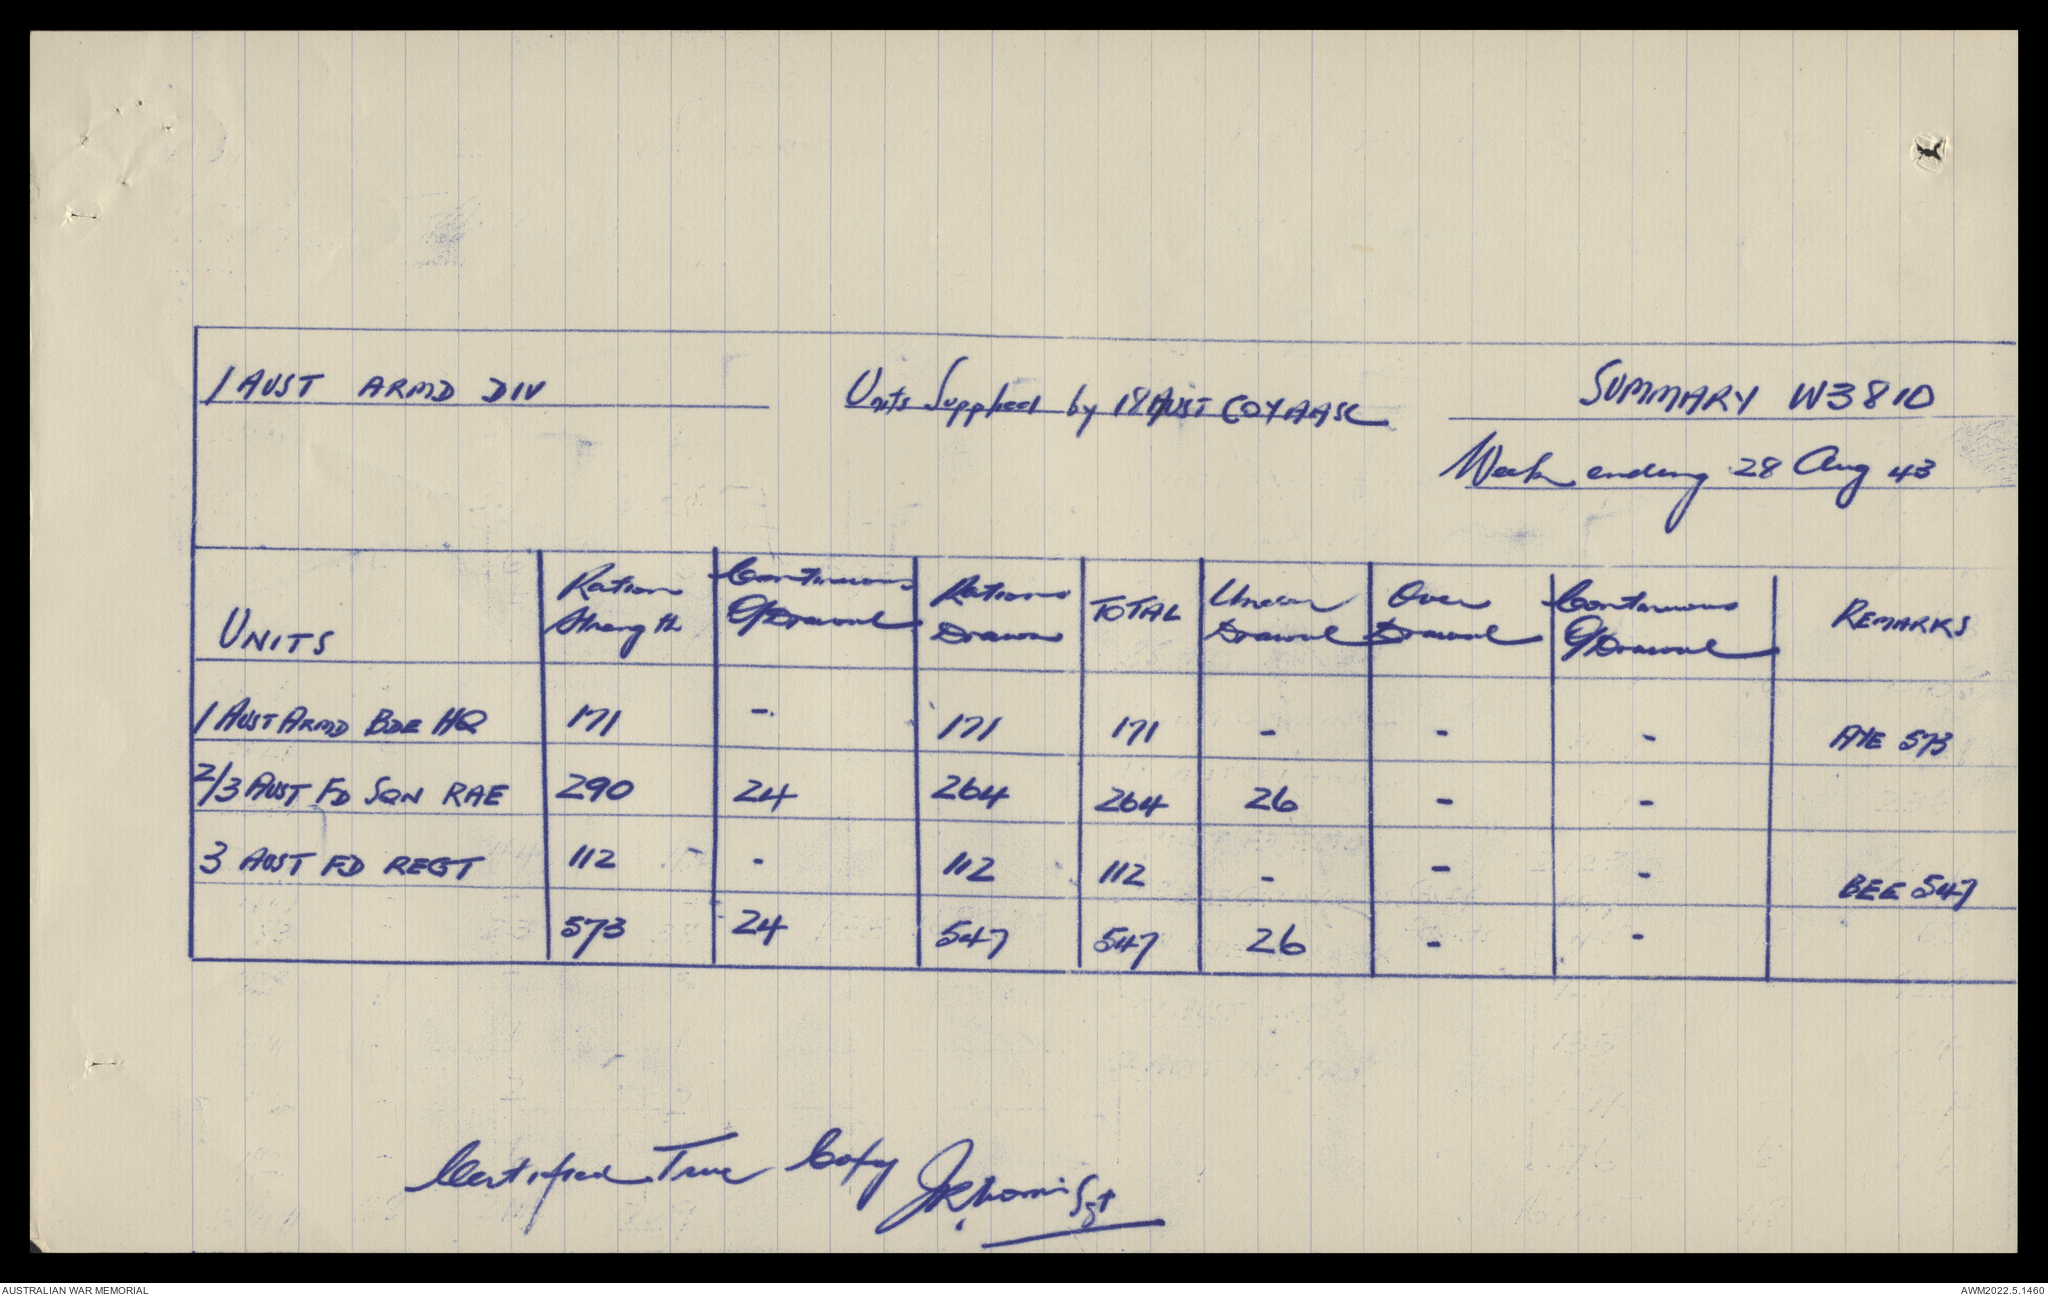 1 AUST ARMD DIV Units Supplied by 18 AUST COY AASC SUMMARY W3810
Week ending 28 Aug 43
UNITS Ration Strength Continuous O/Drawal Rations Drawn TOTAL Under Drawal Over Drawal Continuous O/Drawal REMARKS
1 AUST ARMD BDE HQ 171 - 171 171 - - - AYE 573
2/3 AUST FD SQN RAE 290 24 264 264 26 - -
3 AUST FD REGT 112 - 112 112 - - - BEE 547
573 24 547 547 26 - -
Certified True Copy Sgt
AUSTRALIAN WAR MEMORIAL AWM2022.5.1460